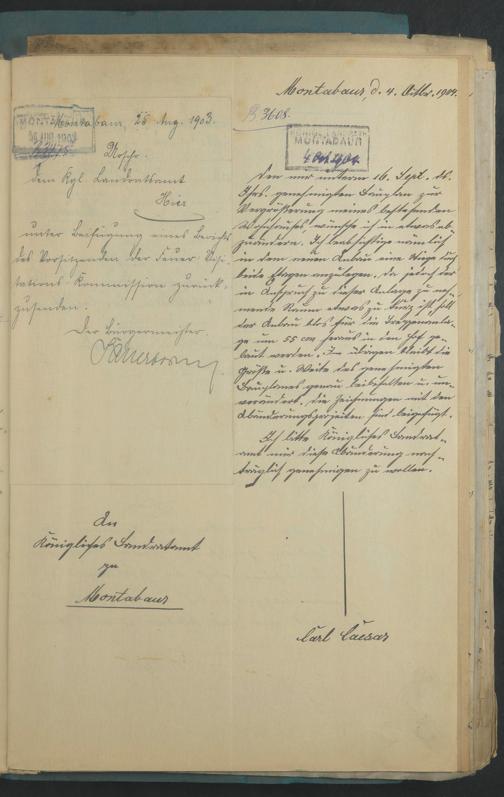 Montabaur, 28 Aug. 1903.
Urschr.
dem Kgl. Landratsamt
Hier
unter Beifügung eines Berichts
des Vorsitzenden der Feuer-Visi-
tations-Kommission zurück-
zusenden.
Der Bürgermeister.
An
Königliches Landratsamt
zu
Montabaur
Montabaur, d. 4. Oktbr. 1904.
3608.
MONTABAUR
4 Okt 1904
Den mir unterm 16. Sept. ds.
Jhrs. genehmigten Bauplan zur
Vergrößerung meines bestehenden
Wohnhauses, wünsche ich in etwas ab-
zuändern. Ich beabsichtige nämlich
in dem neuen Anbau eine Stiege durch
beide Etagen anzulegen. Da jedoch der
in Anspruch zu dieser Anlage zu neh-
mende Raum etwas zu kurz ist, soll
der Anbau blos für die Treppenanla-
ge um 55 cm heraus in den Hof ge-
baut werden. Im übrigen bleibt die
Größe u. Weite des genehmigten
Bauplanes genau beibehalten u. un-
verändert. Die Zeichnungen mit den
Abänderungsprojekten sind beigefügt.
Ich bitte Königliches Landrat-
amt mir diese Abänderung nach-
träglich genehmigen zu wollen.
Carl Caesar